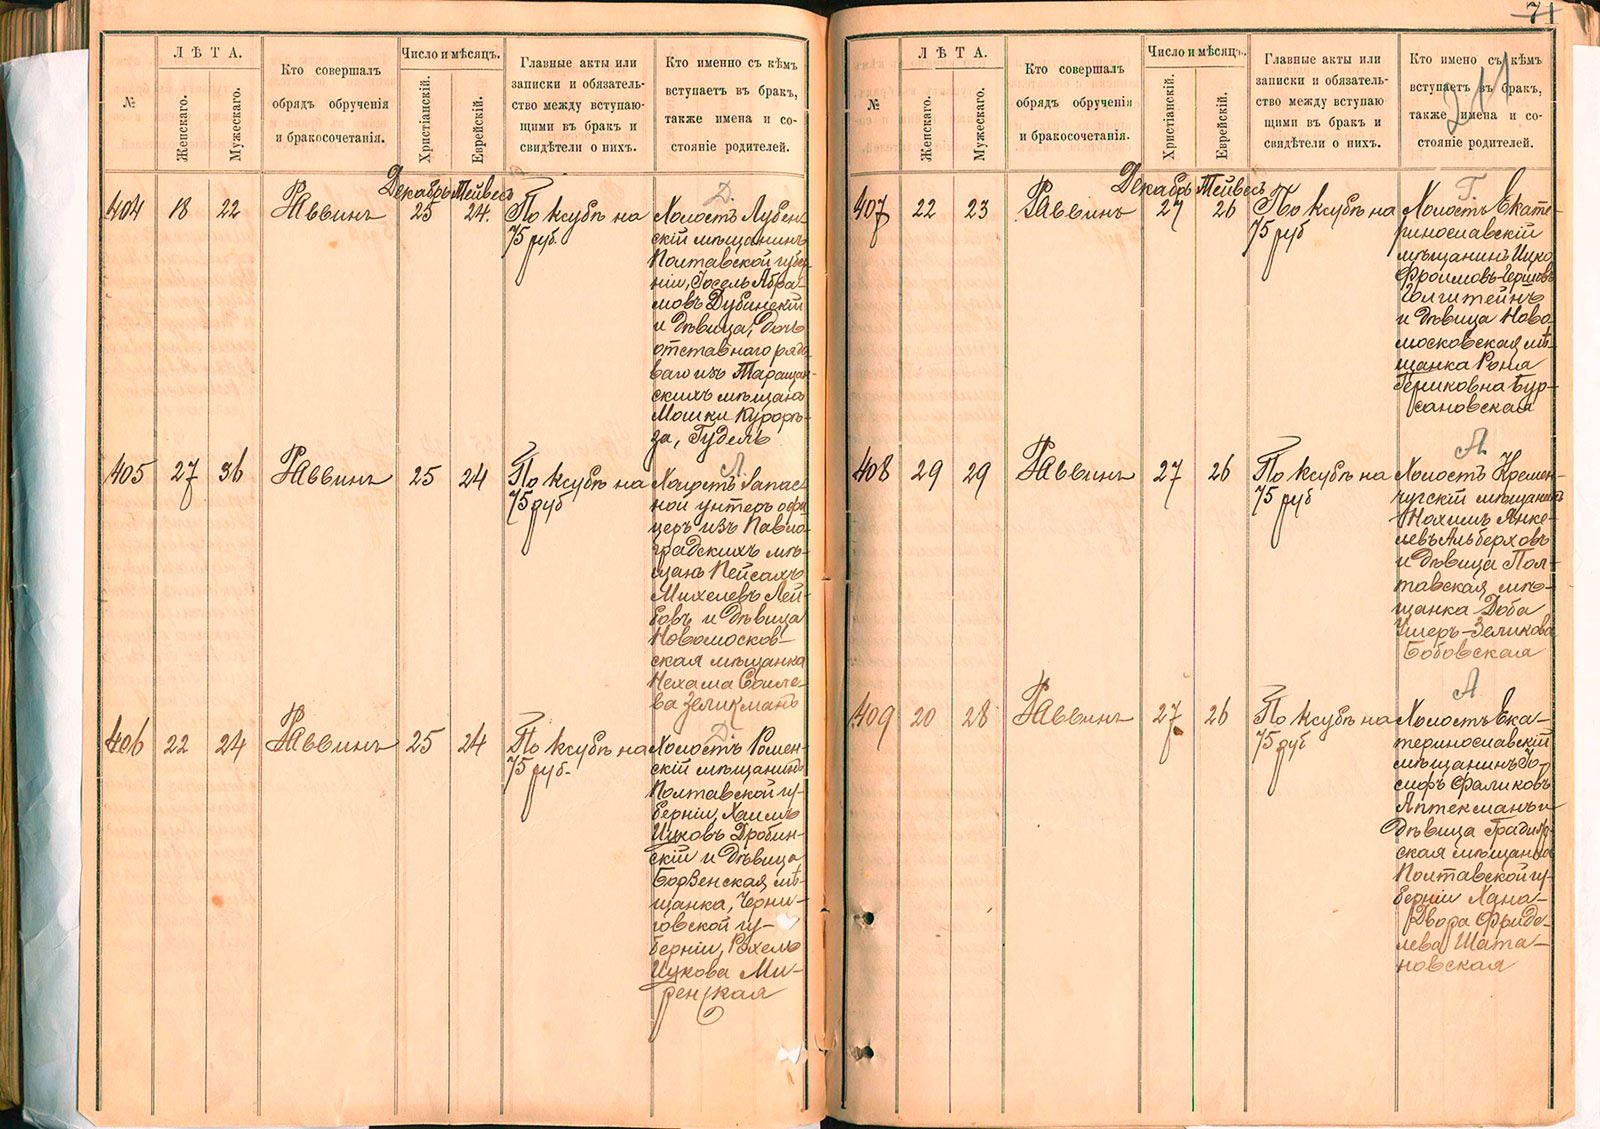 №
ЛѢТА.
Женскаго.
Мужескаго.
Кто совершалъ
обрядъ обрученія
и бракосочетанія.
Число и мѣсяцъ.
Христіанскій.
Еврейскій.
Главные акты или
записки и обязатель-
ство между вступаю-
щими въ бракъ и
свидѣтели о нихъ.
Кто именно съ кѣмъ
вступаетъ въ бракъ,
также имена и со-
стояніе родителей.
Декабрь Тейвесъ
404 18 22 Раввинъ 25 24. По ксубѣ на
75 руб.
Д.
Холостъ Лубен
скій мѣщанинъ
Полтавской губер
ніи, Іосель Абра-
мовъ Дубинскій
и дѣвица, дочь
отставного рядо
ваго изъ Таращан-
скихъ мѣщанъ
Мошки
за, Гудель
405 27 36 Раввинъ 25 24 По ксубѣ на
75 руб
Л.
Холостъ Запас-
ной унтеръ офи
церъ изъ Павло
градскихъ мѣ-
щанъ Пейсахъ
Михелевъ Лей-
бовъ и дѣвица
Новомосков-
ская мѣщанка
Нехама
ва Зелигманъ
406 22 24 Раввинъ 25 24 По ксубѣ на
75 руб.
Д.
Холостъ Ромен-
скій мѣщанинъ
Полтавской гу-
берніи, Хаимъ
Ицковъ Дробин-
скій и дѣвица,
Борзенская мѣ-
щанка, Черни-
говской гу-
берніи, Рохель
Ицкова Ми-
ренская
71
211
№
ЛѢТА.
Женскаго.
Мужескаго.
Кто совершалъ
обрядъ обрученія
и бракосочетанія.
Число и мѣсяцъ.
Христіанскій.
Еврейскій.
Главные акты или
записки и обязатель-
ство между вступаю
щими въ бракъ и
свидѣтели о нихъ.
Кто имено съ кѣмъ
вступаетъ въ бракъ,
также имена и со-
стояніе родителей.
Декабрь Тейвесъ
407 22 23 Раввинъ 27 26 По ксубѣ на
75 руб
Г.
Холостъ Екате-
ринославскій
мѣщанинъ Ицко
Фроимовъ-Гершовъ
Голштейнъ
и дѣвица Ново
московская мѣ
щанка Роня
Бур-
сановская
408 29 29 Раввинъ 27 26 По ксубѣ на
75 руб
А.
Холостъ Кремен-
чугскій мѣщанинъ
Нохимъ Янке-
левъ Альберховъ
и дѣвица Пол-
тавская, мѣ-
щанка Доба
Ушеръ-Зеликова
Бобовская
409 20 28 Раввинъ 27 26 По ксубѣ на
75 руб
А
Холостъ Ека-
теринославскій
мѣщанинъ Іо-
сифъ Фаликовъ
Аптекманъ и
дѣвица Градиж-
ская мѣщанка
Полтавской гу-
берніи Хана-
Двора Фриде-
лева Шата-
новская